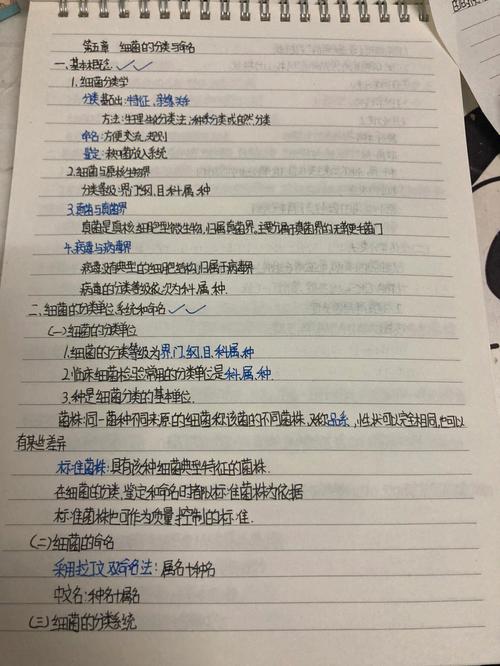 第五章 细菌的分类与命名
一、基本概念
1.细菌分类学
分类 基础:特征,亲缘关系
方法:生理学分类法,种系分类或自然分类
命名:方便交流,规则
鉴定:未知菌放入系统
2.细菌与原核生物界
分类等级:界门纲,目科属,种
3.真菌与真菌界
真菌是真核细胞型微生物,归属真菌界。主要分属于真菌界的
4.病毒与病毒界
病毒没有典型的细胞结构,归属于病毒界
病毒的分类等级依次为科,属,种.
二.细菌的分类单位,系统和命名
(一)细菌的分类单位
1.细菌的分类等级为界,门,纲,目,科,属,种
2.临床细菌检验常用的分类单位是科,属,种.
3.种是细菌分类的基本单位.
菌株:同一菌种不同来源的细菌称该菌的不同菌株.又称品系,性状可以完全相同,也可以
有某些差异
标准菌株:具有该种细菌典型特征的菌株.
在细菌的分类,鉴定和命名时都以标准菌株为依据
标准菌株也可作为质量控制的标准.
(二)细菌的命名
采用拉丁文双命名法:属名+种名
中文名:种名+属名
(三)细菌的分类系统